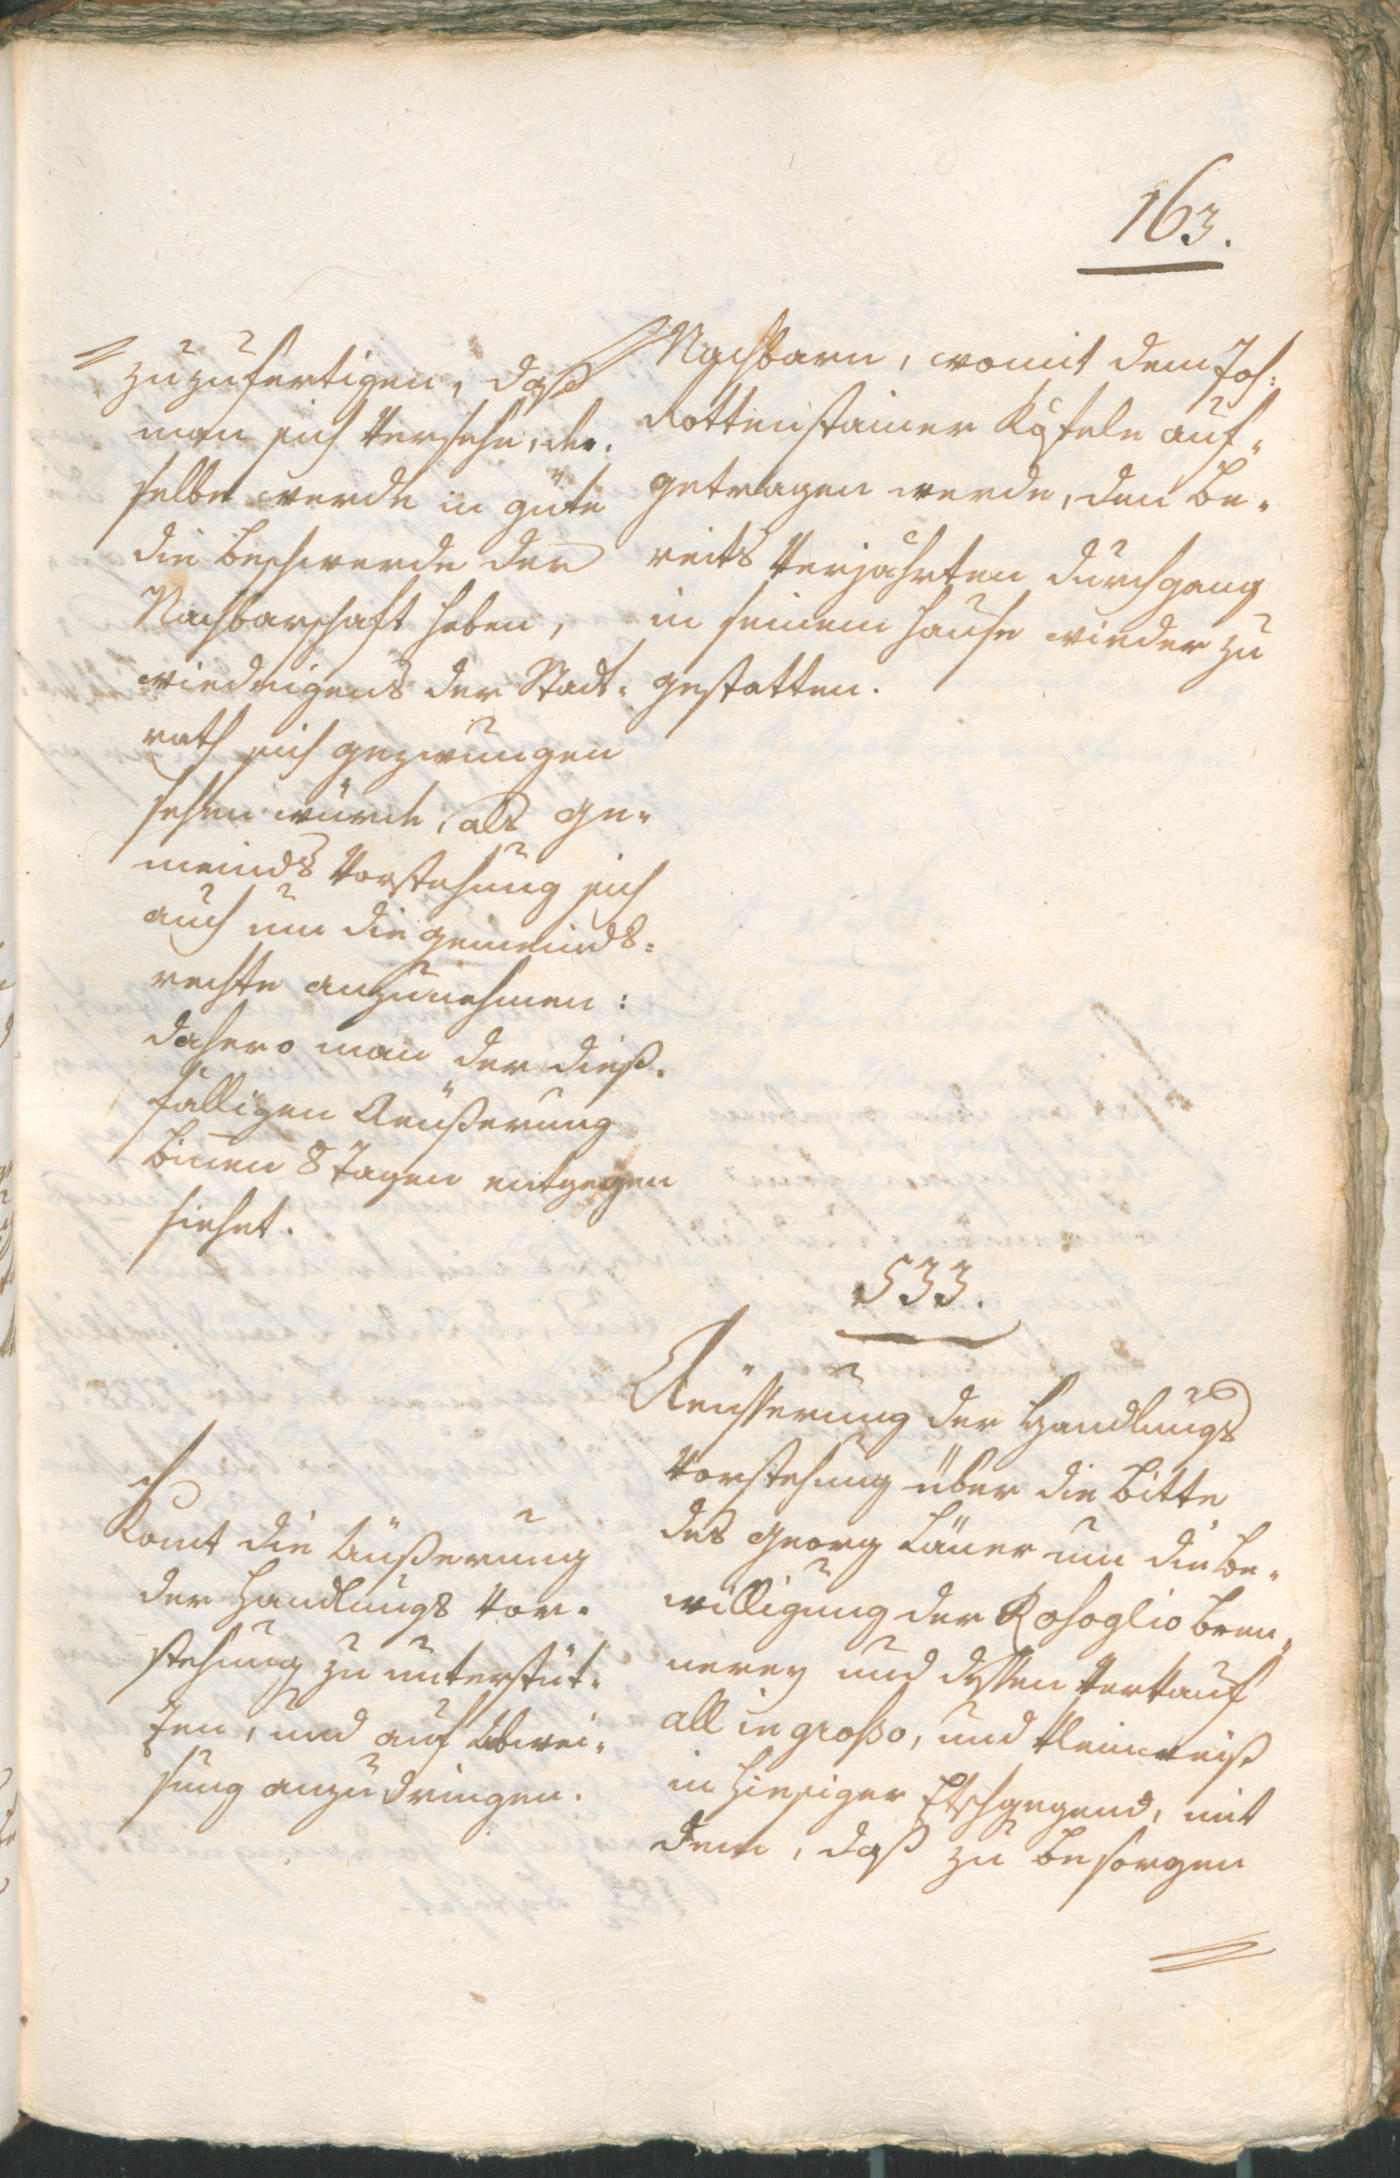 163.
zuzufertigen, daß
man sich versehe, der-
selbe werde in güte
die beschwerde der
Nachbarschaft heben,
wiedrigens der Stadt-
rath sich gezwungen
sehen würde, als ge-
meinds Vorstehung sich
auch um die gemeinds-
rechte anzunehmen:
dahero man der dieß-
fälligen Aeußerung
binen 8 Tagen entgegen
siehet.
Nachbarn, womit dem Joh:
Rottenstainer Köfele auf-
getragen werde, den be-
reits verjährten durchgang
in seinem hause wieder zu
gestatten.
533.
Aeusserung der Handlungs
Vorstehung über die bitte
des Georg Läner um die be-
willigung der Rosoglio bren-
nerey und dessen verkauf
all in grosso, und kleinweiß
in hiesiger Etschgegend, mit
dem, daß zu besorgen
Komt die äußerung
der Handlungs Vor-
stehung zu unterstüt-
zen, und auf abwei-
sung anzudringen.